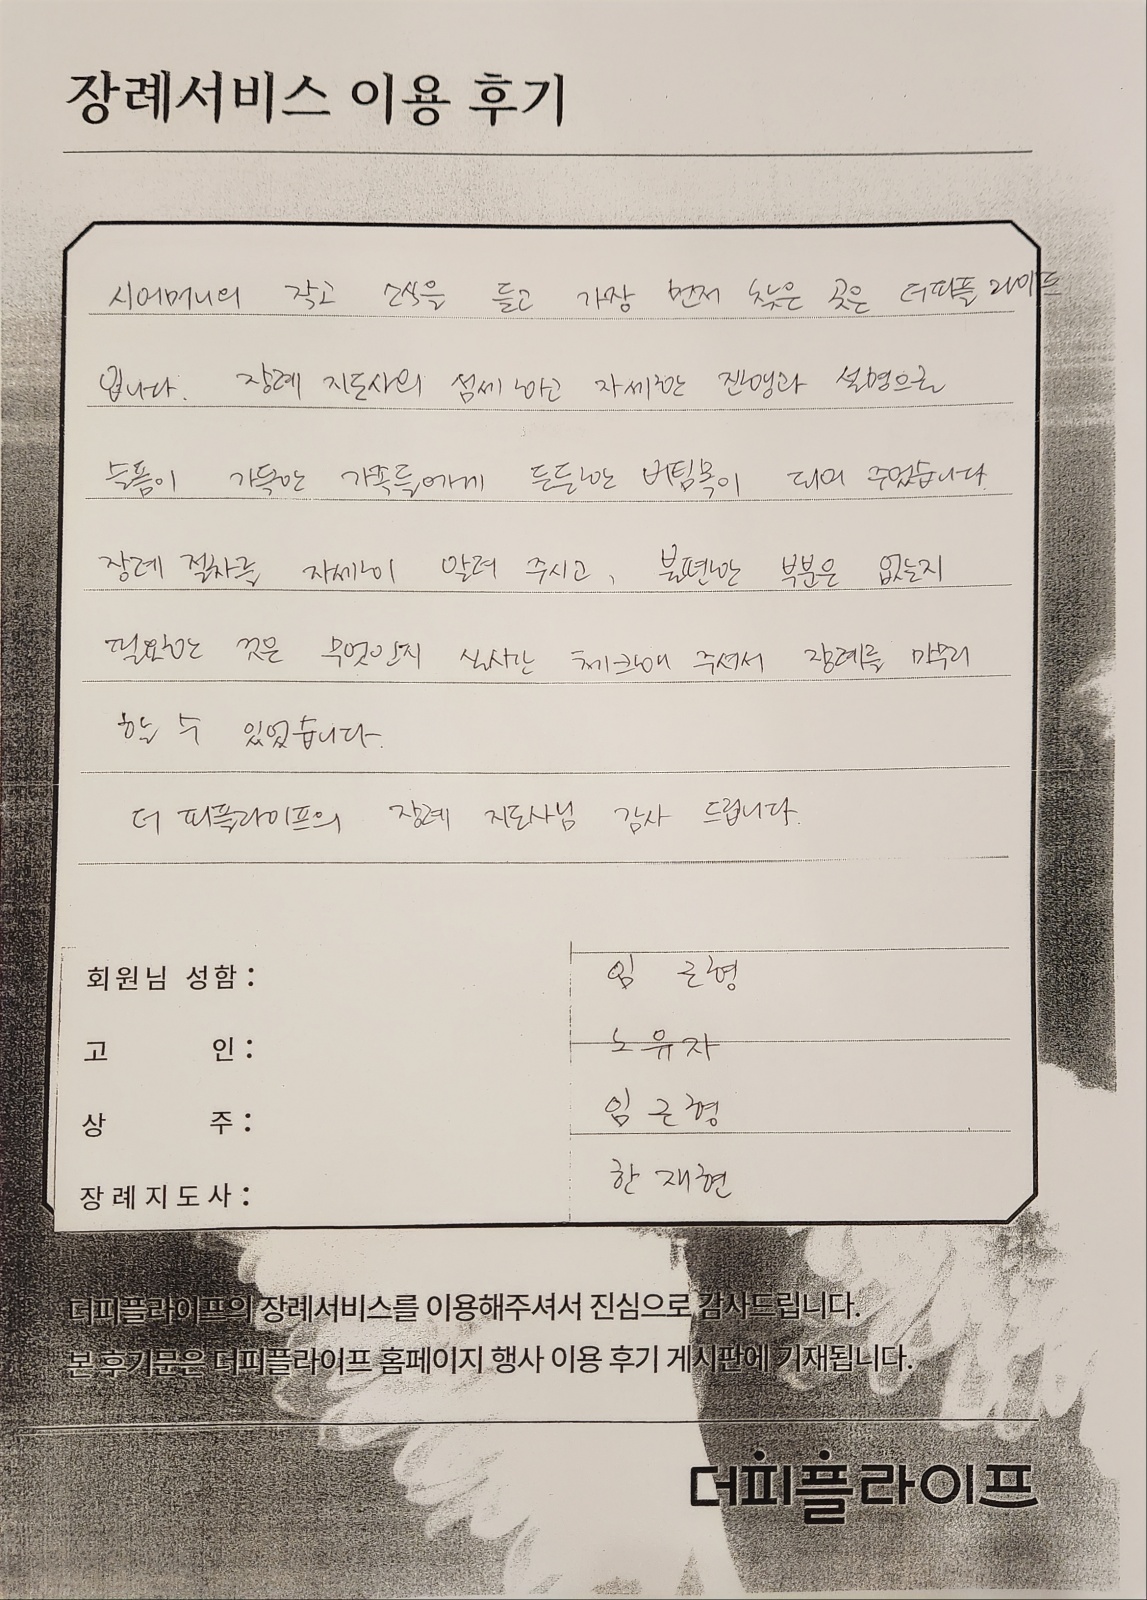 장례서비스 이용 후기
시어머니의 작고 소식을 듣고 가장 먼저 찾은 곳은 더피플라이프
입니다. 장례 지도사의 섬세하고 자세한 진행과 설명으로
슬픔이 가득한 가족들에게 든든한 버팀목이 되어 주었습니다.
장례 절차를 자세히 알려 주시고, 불편한 부분은 없는지
필요한 것은 무엇인지 실시간 체크해 주셔서 장례를 마무리
할 수 있었습니다.
더 피플라이프의 장례 지도사님 감사 드립니다.
회원님 성함 : 임 근형
고 인 : 노유자
상 주 : 임근형
장례지도사 : 한재현
더피플라이프의 장례서비스를 이용해주셔서 진심으로 감사드립니다.
본 후기문은 더피플라이프 홈페이지 행사 이용 후기 게시판에 기재됩니다.
더피플라이프